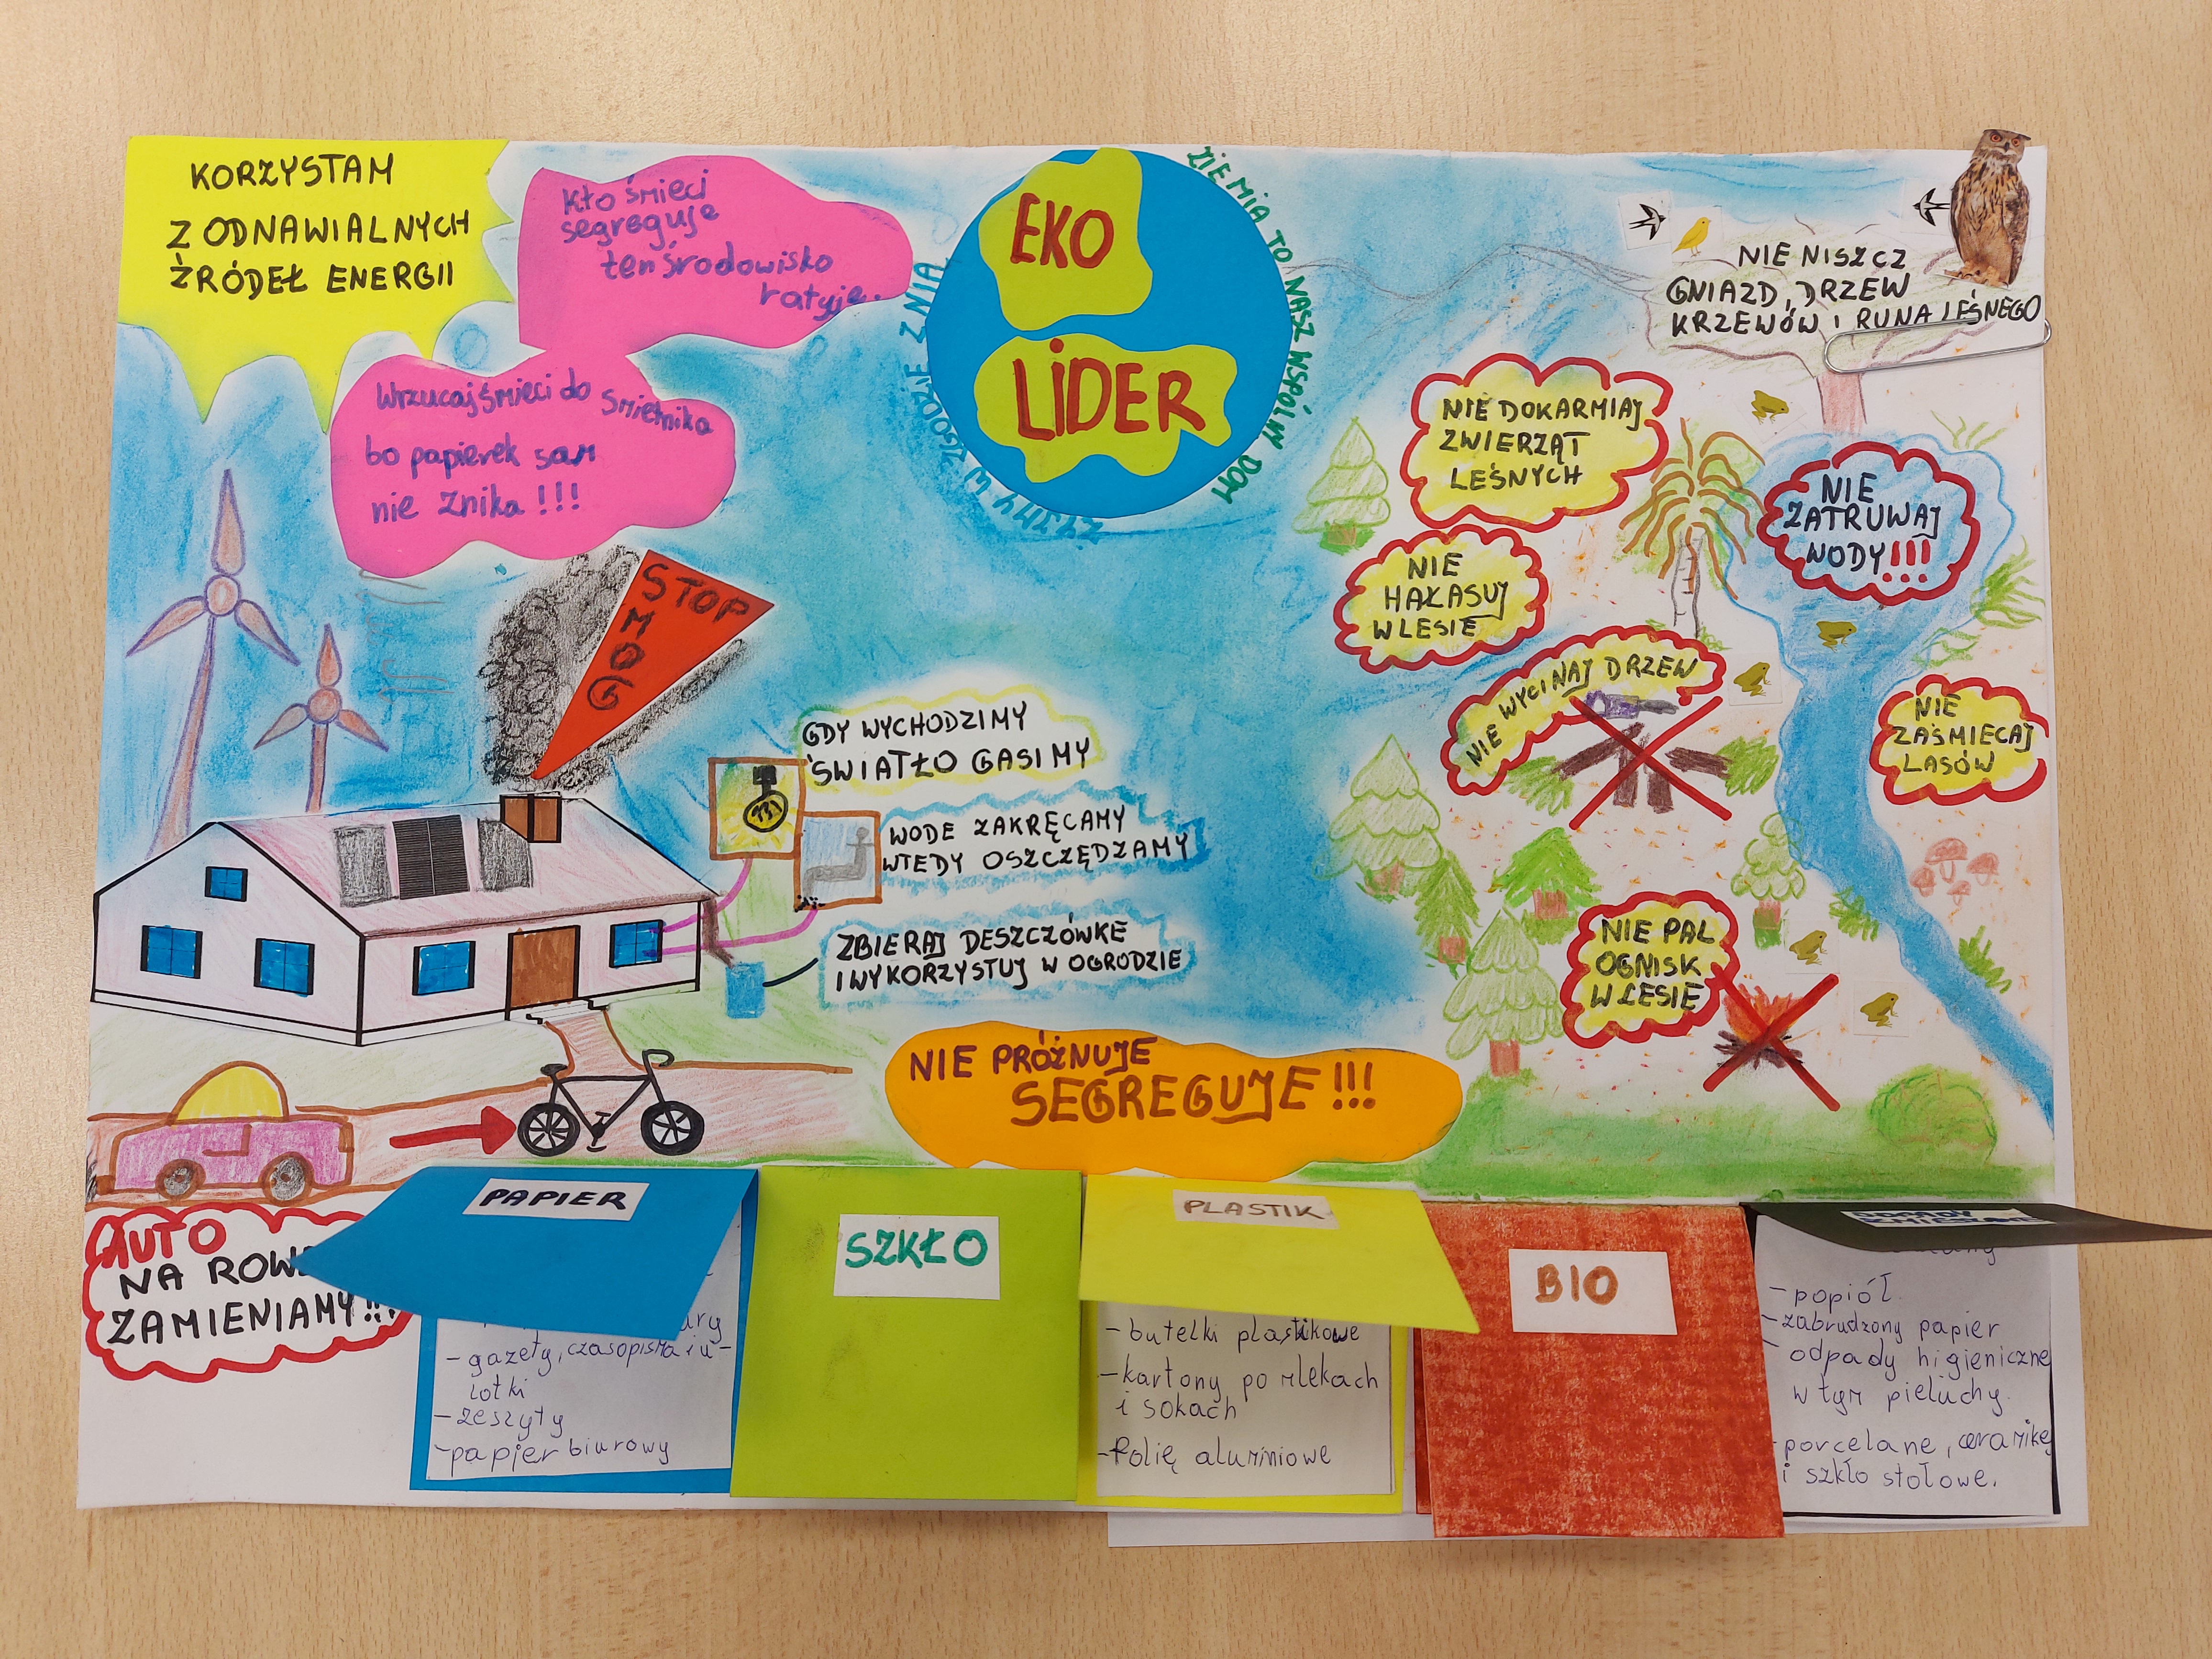 KORZYSTAM
Z ODNAWIALNYCH
ŹRÓDEŁ ENERGII
Kto śmieci
segreguje
ten środowisko
ratuje.
Wrzucaj śmieci do śmietnika
bo papierek sam
nie znika!!!
EKO
LİDER
ZIEMIA TO NASZ WSPÓLNY DOM
ŻYJMY W ZGODZIE Z NIĄ
NIE NISZCZ
GNIAZD, DRZEW
KRZEWÓW I RUNA LEŚNEGO
NIE DOKARMIAJ
ZWIERZĄT
LEŚNYCH
NIE
ZATRUWAJ
WODY!!!
NIE
HAŁASUJ
W LESIE
NIE WYCINAJ DRZEW
NIE
ZAŚMIECAJ
LASÓW
NIE PAL
OGNISK
W LESIE
STOP
SMOG
GDY WYCHODZIMY
ŚWIATŁO GASIMY
WODE ZAKRĘCAMY
WTEDY OSZCZĘDZAMY
ZBIERAJ DESZCZÓWKE
I WYKORZYSTUJ W OGRODZIE
NIE PRÓŻNUJE
SEGREGUJE!!!
AUTO
NA
ZAMIENIAMY!!!
PAPIER
- gazety, czasopisma i u-
lotki
- zeszyty
- papier biurowy
SZKŁO
PLASTIK
- butelki plastikowe
- kartony po mlekach
i sokach
- folię aluminiowe
BIO
- popiół
- zabrudzony papier
- odpady higieniczne
w tym pieluchy.
- porcelane, ceramikę
i szkło stołowe.